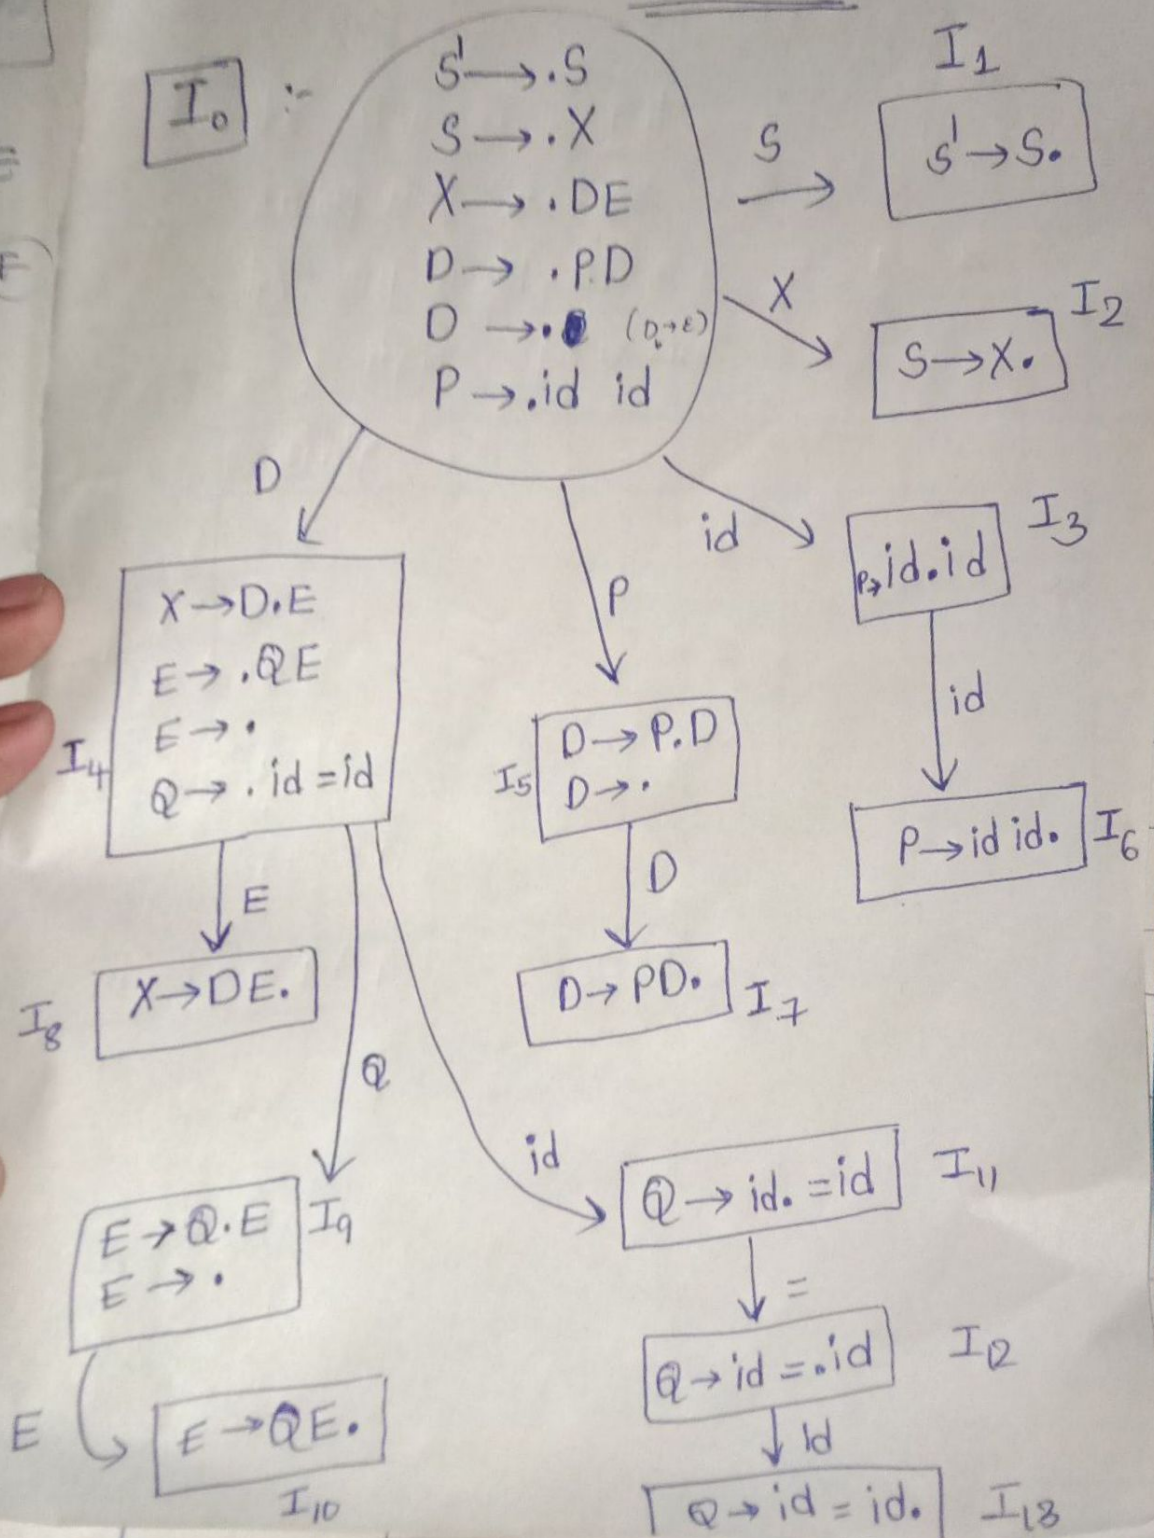 I₀ :-
S' → .S
S → .X
X → .DE
D → .PD
D → . (D → ε)
P → .id id
S
I₁
S' → S.
X
I₂
S → X.
D
P
id
I₃
P → id.id
id
I₆
P → id id.
I₄
X → D.E
E → .QE
E → .
Q → . id = id
I₅
D → P.D
D → .
D
D → PD.
I₇
E
I₈
X → DE.
Q
id
I₉
E → Q.E
E → .
E
E → QE.
I₁₀
Q → id. = id
I₁₁
=
Q → id = .id
I₁₂
id
Q → id = id.
I₁₃